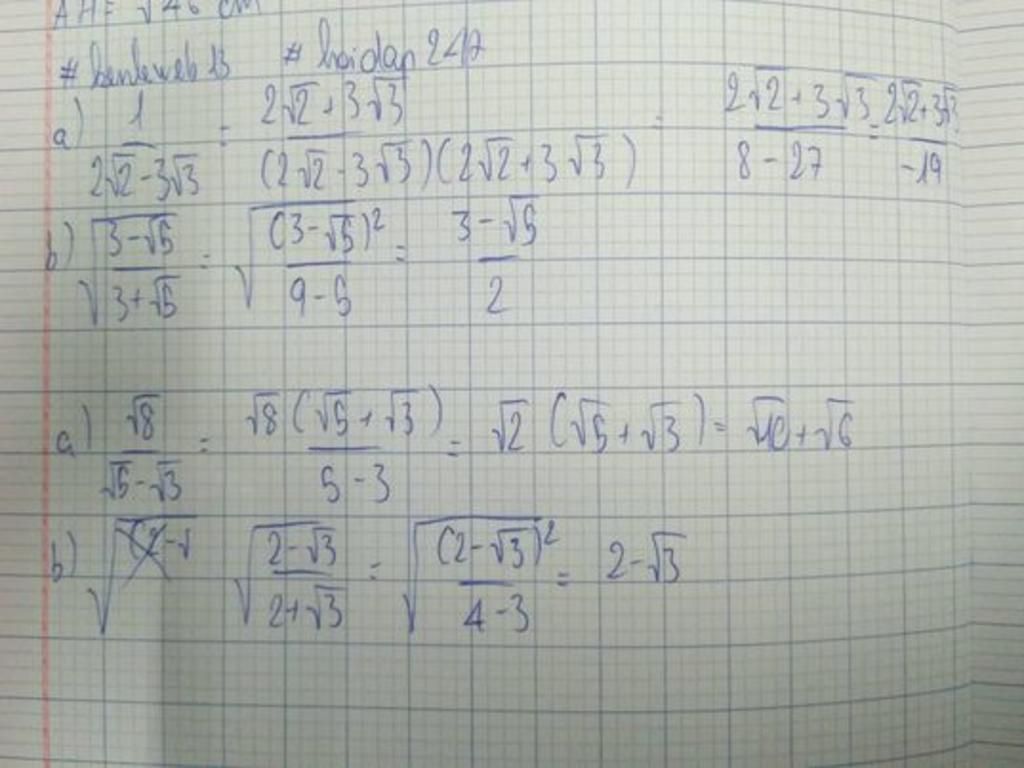 AH = √46 cm
# hoidap247
a) 1/(2√2 - 3√3) = (2√2 + 3√3)/((2√2 - 3√3)(2√2 + 3√3)) = (2√2 + 3√3)/(8 - 27) = (2√2 + 3√3)/(-19)
b) √((3 - √5)/(3 + √5)) = √((3 - √5)²/(9 - 5)) = (3 - √5)/2
a) √8/(√5 - √3) = √8(√5 + √3)/(5 - 3) = √2(√5 + √3) = √10 + √6
b) √((2 - √3)/(2 + √3)) = √((2 - √3)²/(4 - 3)) = 2 - √3